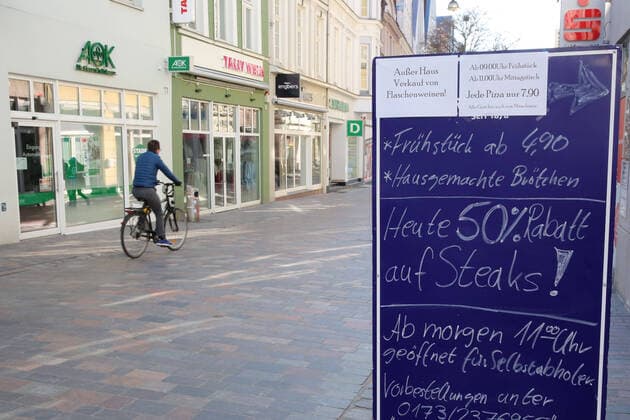 AOK
TALLY WEIJL
AOK
TALLY WEIJL
engbers
D
Außer Haus
Verkauf von
Flaschenweinen!
Ab 09.00 Uhr Frühstück
Ab 11.00 Uhr Mittagstisch
Jede Pizza nur 7.90
*Frühstück ab 4,90
*Hausgemachte Brötchen
Heute 50% Rabatt
auf Steaks!
Ab morgen 11⁰⁰ Uhr
geöffnet für Selbstabholer.
Vorbestellungen unter